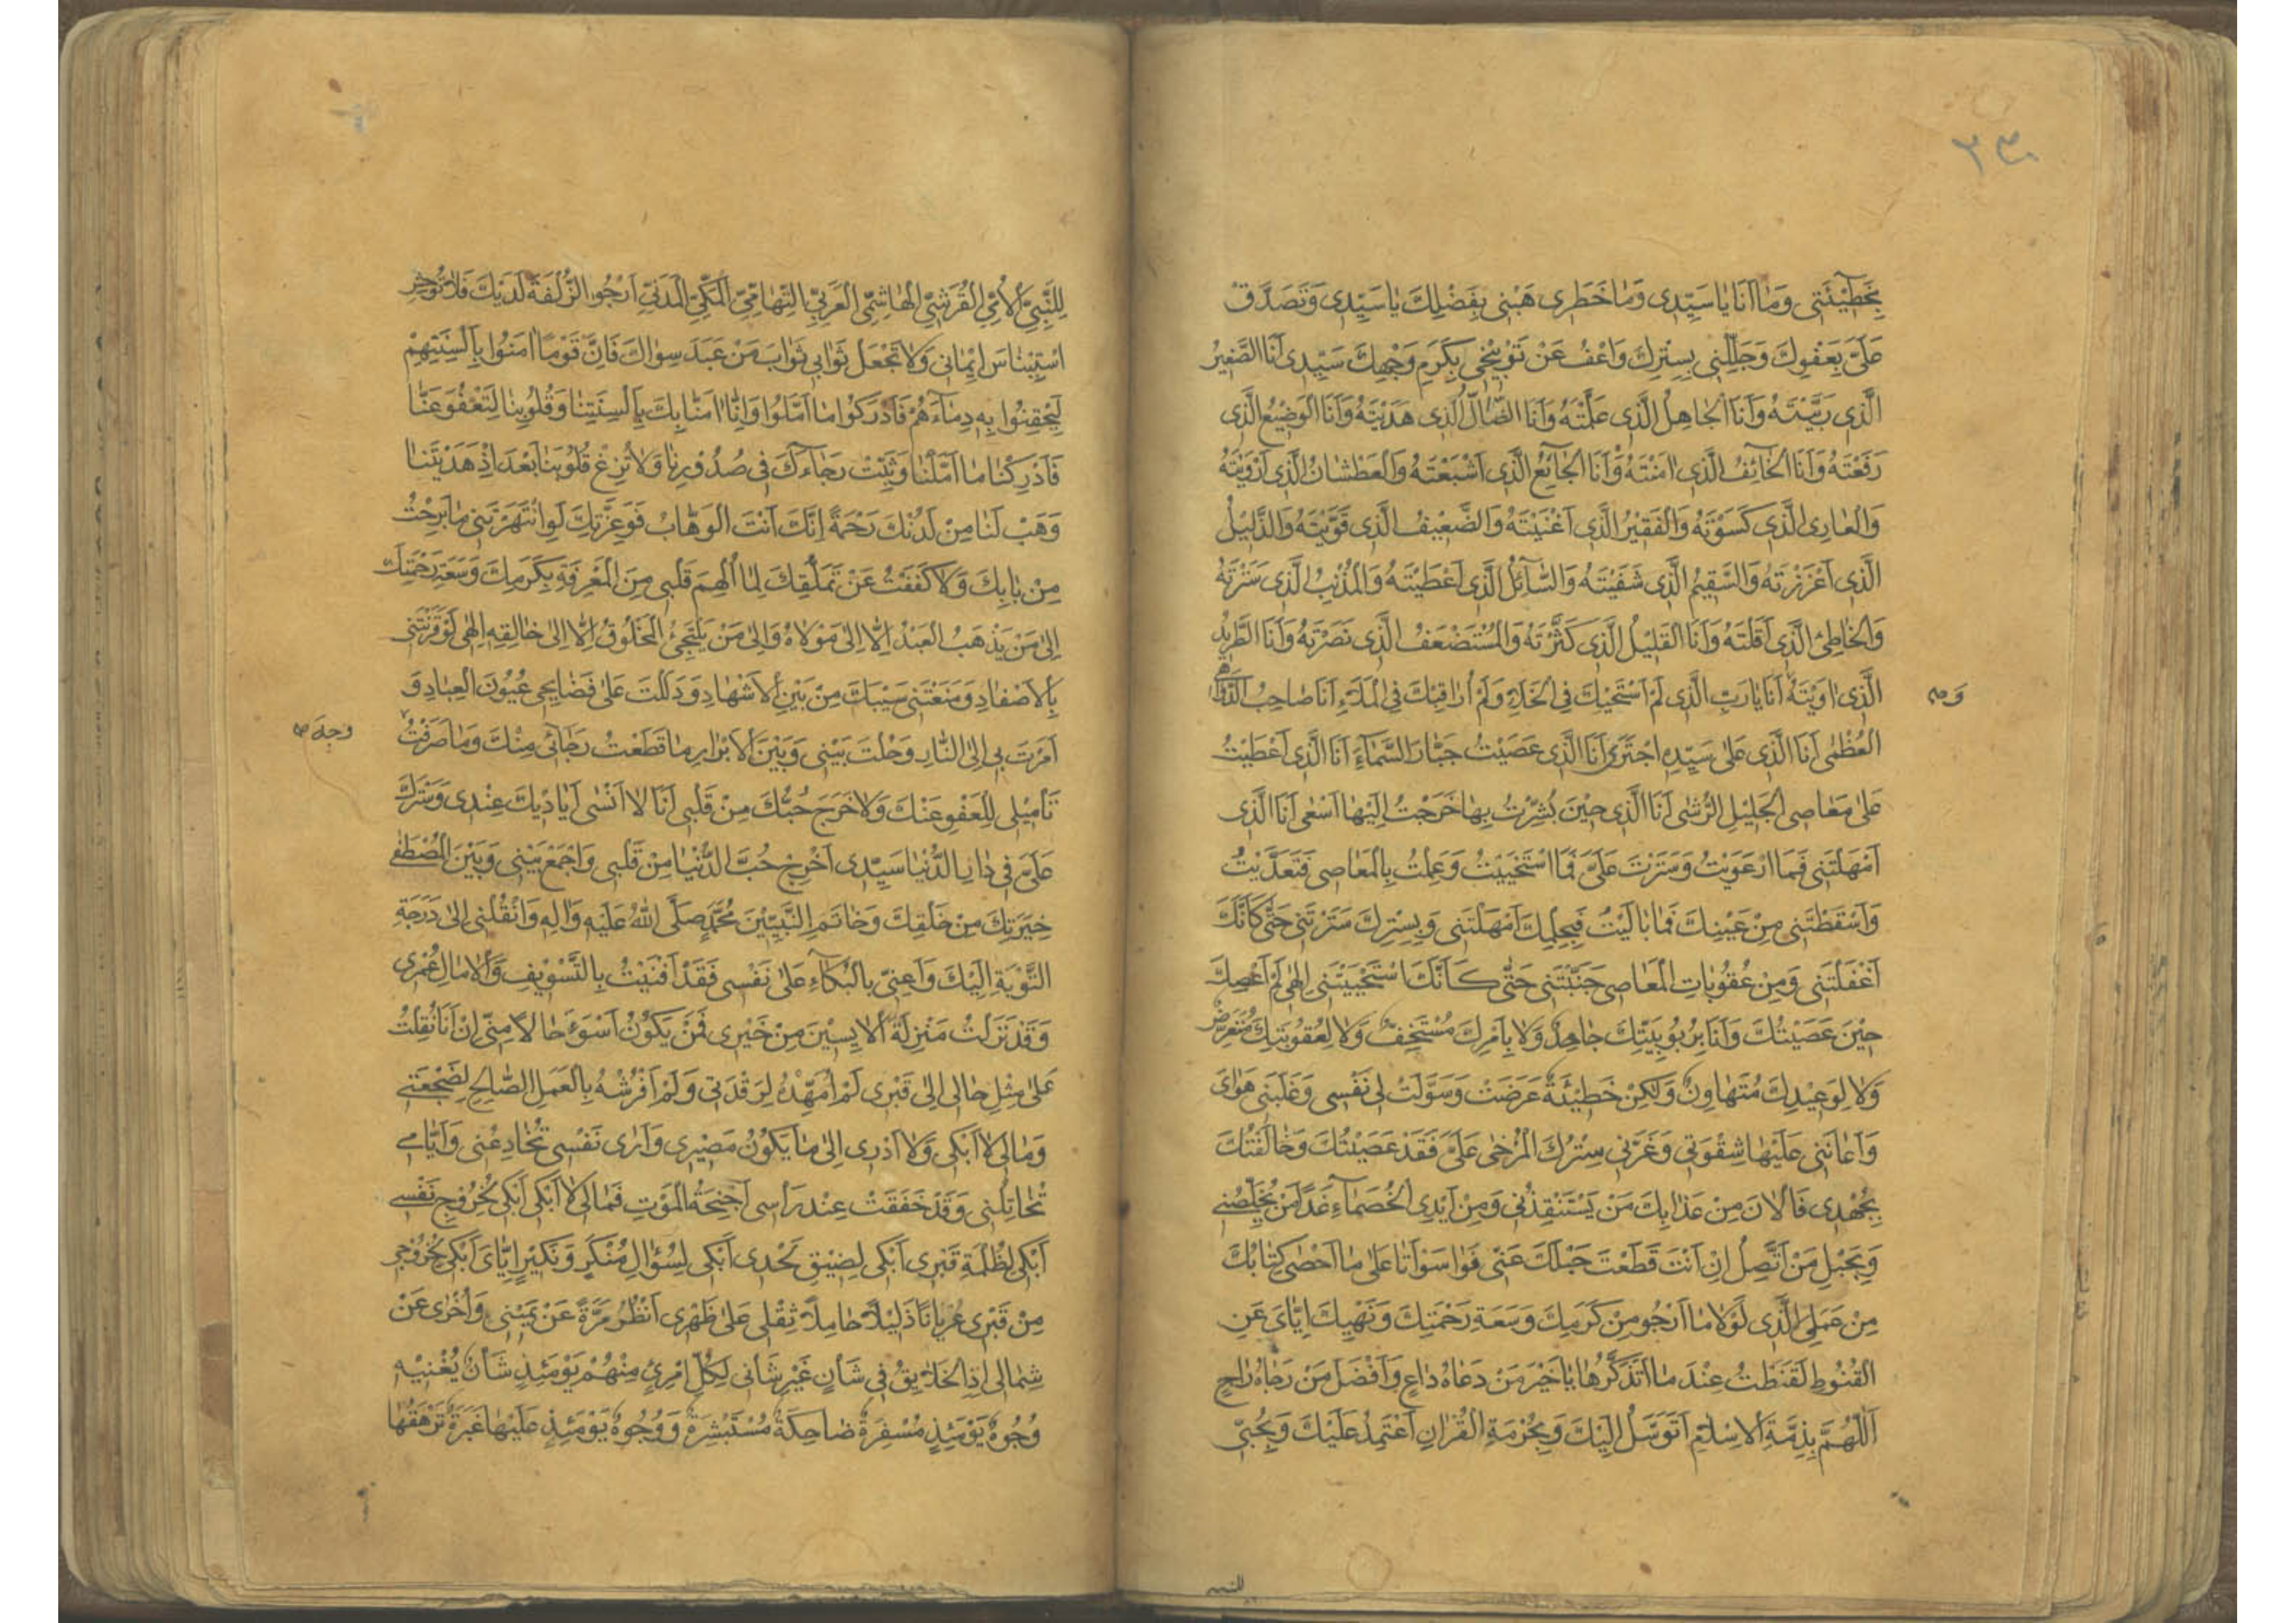 ٢٣٠
بِخَطِيْئَتِي وَمَا اَنَا يَا سَيِّدِي وَمَا خَطَرِي هَبْنِي بِفَضْلِكَ يَا سَيِّدِي وَتَصَدَّقْ
عَلَيَّ بِعَفْوِكَ وَجَلِّلْنِي بِسِتْرِكَ وَاعْفُ عَنْ تَوْبِيْخِي بِكَرَمِ وَجْهِكَ سَيِّدِي اَنَا الصَّغِيْرُ
الَّذِي رَبَّيْتَهُ وَاَنَا الْجَاهِلُ الَّذِي عَلَّمْتَهُ وَاَنَا الضَّالُّ الَّذِي هَدَيْتَهُ وَاَنَا الْوَضِيْعُ الَّذِي
رَفَعْتَهُ وَاَنَا الْخَائِفُ الَّذِي اٰمَنْتَهُ وَاَنَا الْجَائِعُ الَّذِي اَشْبَعْتَهُ وَالْعَطْشَانُ الَّذِي اَرْوَيْتَهُ
وَالْعَارِي الَّذِي كَسَوْتَهُ وَالْفَقِيْرُ الَّذِي اَغْنَيْتَهُ وَالضَّعِيْفُ الَّذِي قَوَّيْتَهُ وَالذَّلِيْلُ
الَّذِي اَعْزَزْتَهُ وَالسَّقِيْمُ الَّذِي شَفَيْتَهُ وَالسَّائِلُ الَّذِي اَعْطَيْتَهُ وَالْمُذْنِبُ الَّذِي سَتَرْتَهُ
وَالْخَاطِئُ الَّذِي اَقَلْتَهُ وَاَنَا الْقَلِيْلُ الَّذِي كَثَّرْتَهُ وَالْمُسْتَضْعَفُ الَّذِي نَصَرْتَهُ وَاَنَا الطَّرِيْدُ
الَّذِي اٰوَيْتَهُ اَنَا يَا رَبِّ الَّذِي لَمْ اَسْتَحْيِكَ فِي الْخَلَاءِ وَلَمْ اُرَاقِبْكَ فِي الْمَلَاءِ اَنَا صَاحِبُ الدَّوَاهِي
الْعُظْمٰى اَنَا الَّذِي عَلٰى سَيِّدِهِ اجْتَرٰى اَنَا الَّذِي عَصَيْتُ جَبَّارَ السَّمَاءِ اَنَا الَّذِي اَعْطَيْتُ
عَلٰى مَعَاصِي الْجَلِيْلِ الرُّشٰى اَنَا الَّذِي حِيْنَ بُشِّرْتُ بِهَا خَرَجْتُ اِلَيْهَا اَسْعٰى اَنَا الَّذِي
اَمْهَلْتَنِي فَمَا ارْعَوَيْتُ وَسَتَرْتَ عَلَيَّ فَمَا اسْتَحْيَيْتُ وَعَمِلْتُ بِالْمَعَاصِي فَتَعَدَّيْتُ
وَاَسْقَطْتَنِي مِنْ عَيْنِكَ فَمَا بَالَيْتُ فَبِحِلْمِكَ اَمْهَلْتَنِي وَبِسِتْرِكَ سَتَرْتَنِي حَتّٰى كَاَنَّكَ
اَغْفَلْتَنِي وَمِنْ عُقُوْبَاتِ الْمَعَاصِي جَنَّبْتَنِي حَتّٰى كَاَنَّكَ اسْتَحْيَيْتَنِي اِلٰهِي لَمْ اَعْصِكَ
حِيْنَ عَصَيْتُكَ وَاَنَا بِرُبُوْبِيَّتِكَ جَاحِدٌ وَلَا بِاَمْرِكَ مُسْتَخِفٌّ وَلَا لِعُقُوْبَتِكَ مُتَعَرِّضٌ
وَلَا لِوَعِيْدِكَ مُتَهَاوِنٌ وَلٰكِنْ خَطِيْئَةٌ عَرَضَتْ وَسَوَّلَتْ لِي نَفْسِي وَغَلَبَنِي هَوَايَ
وَاَعَانَنِي عَلَيْهَا شِقْوَتِي وَغَرَّنِي سِتْرُكَ الْمُرْخٰى عَلَيَّ فَقَدْ عَصَيْتُكَ وَخَالَفْتُكَ
بِجُهْدِي فَالْاٰنَ مِنْ عَذَابِكَ مَنْ يَسْتَنْقِذُنِي وَمِنْ اَيْدِي الْخُصَمَاءِ غَدًا مَنْ يُخَلِّصُنِي
وَبِحَبْلِ مَنْ اَتَّصِلُ اِنْ اَنْتَ قَطَعْتَ حَبْلَكَ عَنِّي فَوَا سَوْاَتَا عَلٰى مَا اَحْصٰى كِتَابُكَ
مِنْ عَمَلِيَ الَّذِي لَوْلَا مَا اَرْجُو مِنْ كَرَمِكَ وَسَعَةِ رَحْمَتِكَ وَنَهْيِكَ اِيَّايَ عَنِ
الْقُنُوْطِ لَقَنَطْتُ عِنْدَ مَا اَتَذَكَّرُهَا يَا خَيْرَ مَنْ دَعَاهُ دَاعٍ وَاَفْضَلَ مَنْ رَجَاهُ رَاجٍ
اَللّٰهُمَّ بِذِمَّةِ الْاِسْلَامِ اَتَوَسَّلُ اِلَيْكَ وَبِحُرْمَةِ الْقُرْاٰنِ اَعْتَمِدُ عَلَيْكَ وَبِحُبِّي
للنبي
لِلنَّبِيِّ الْاُمِّيِّ الْقُرَشِيِّ الْهَاشِمِيِّ الْعَرَبِيِّ التِّهَامِيِّ الْمَكِّيِّ الْمَدَنِيِّ اَرْجُو الزُّلْفَةَ لَدَيْكَ فَلَا تُوْحِشِ
اسْتِيْنَاسَ اِيْمَانِي وَلَا تَجْعَلْ ثَوَابِي ثَوَابَ مَنْ عَبَدَ سِوَاكَ فَاِنَّ قَوْمًا اٰمَنُوْا بِاَلْسِنَتِهِمْ
لِيَحْقِنُوْا بِهِ دِمَاءَهُمْ فَاَدْرَكُوْا مَا اَمَّلُوْا وَاِنَّا اٰمَنَّا بِكَ بِاَلْسِنَتِنَا وَقُلُوْبِنَا لِتَعْفُوَ عَنَّا
فَاَدْرِكْنَا مَا اَمَّلْنَا وَثَبِّتْ رَجَاءَكَ فِي صُدُوْرِنَا وَلَا تُزِغْ قُلُوْبَنَا بَعْدَ اِذْ هَدَيْتَنَا
وَهَبْ لَنَا مِنْ لَدُنْكَ رَحْمَةً اِنَّكَ اَنْتَ الْوَهَّابُ فَوَعِزَّتِكَ لَوِ انْتَهَرْتَنِي مَا بَرِحْتُ
مِنْ بَابِكَ وَلَا كَفَفْتُ عَنْ تَمَلُّقِكَ لِمَا اُلْهِمَ قَلْبِي مِنَ الْمَعْرِفَةِ بِكَرَمِكَ وَسَعَةِ رَحْمَتِكَ
اِلٰى مَنْ يَذْهَبُ الْعَبْدُ اِلَّا اِلٰى مَوْلَاهُ وَاِلٰى مَنْ يَلْتَجِئُ الْمَخْلُوْقُ اِلَّا اِلٰى خَالِقِهِ اِلٰهِي لَوْ قَرَنْتَنِي
بِالْاَصْفَادِ وَمَنَعْتَنِي سَيْبَكَ مِنْ بَيْنِ الْاَشْهَادِ وَدَلَلْتَ عَلٰى فَضَايِحِي عُيُوْنَ الْعِبَادِ وَ
اَمَرْتَ بِي اِلَى النَّارِ وَحُلْتَ بَيْنِي وَبَيْنَ الْاَبْرَارِ مَا قَطَعْتُ رَجَائِي مِنْكَ وَمَا صَرَفْتُ
تَأْمِيْلِي لِلْعَفْوِ عَنْكَ وَلَا خَرَجَ حُبُّكَ مِنْ قَلْبِي اَنَا لَا اَنْسٰى اَيَادِيَكَ عِنْدِي وَسَتْرَكَ
عَلَيَّ فِي دَارِ الدُّنْيَا سَيِّدِي اَخْرِجْ حُبَّ الدُّنْيَا مِنْ قَلْبِي وَاجْمَعْ بَيْنِي وَبَيْنَ الْمُصْطَفٰى
خِيَرَتِكَ مِنْ خَلْقِكَ وَخَاتَمِ النَّبِيِّيْنَ مُحَمَّدٍ صَلَّى اللّٰهُ عَلَيْهِ وَاٰلِهِ وَانْقُلْنِي اِلٰى دَرَجَةِ
التَّوْبَةِ اِلَيْكَ وَاَعِنِّي بِالْبُكَاءِ عَلٰى نَفْسِي فَقَدْ اَفْنَيْتُ بِالتَّسْوِيْفِ وَالْاٰمَالِ عُمْرِي
وَقَدْ نَزَلْتُ مَنْزِلَةَ الْاٰيِسِيْنَ مِنْ خَيْرِي فَمَنْ يَكُوْنُ اَسْوَءَ حَالًا مِنِّي اِنْ اَنَا نُقِلْتُ
عَلٰى مِثْلِ حَالِي اِلٰى قَبْرِي لَمْ اُمَهِّدْهُ لِرَقْدَتِي وَلَمْ اَفْرُشْهُ بِالْعَمَلِ الصَّالِحِ لِضَجْعَتِي
وَمَا لِي لَا اَبْكِي وَلَا اَدْرِي اِلٰى مَا يَكُوْنُ مَصِيْرِي وَاَرٰى نَفْسِي تُخَادِعُنِي وَاَيَّامِي
تُخَاتِلُنِي وَقَدْ خَفَقَتْ عِنْدَ رَأْسِي اَجْنِحَةُ الْمَوْتِ فَمَا لِي لَا اَبْكِي اَبْكِي لِخُرُوْجِ نَفْسِي
اَبْكِي لِظُلْمَةِ قَبْرِي اَبْكِي لِضِيْقِ لَحْدِي اَبْكِي لِسُؤَالِ مُنْكَرٍ وَنَكِيْرٍ اِيَّايَ اَبْكِي لِخُرُوْجِي
مِنْ قَبْرِي عُرْيَانًا ذَلِيْلًا حَامِلًا ثِقْلِي عَلٰى ظَهْرِي اَنْظُرُ مَرَّةً عَنْ يَمِيْنِي وَاُخْرٰى عَنْ
شِمَالِي اِذِ الْخَلَايِقُ فِي شَأْنٍ غَيْرِ شَأْنِي لِكُلِّ امْرِئٍ مِنْهُمْ يَوْمَئِذٍ شَأْنٌ يُغْنِيْهِ
وُجُوْهٌ يَوْمَئِذٍ مُسْفِرَةٌ ضَاحِكَةٌ مُسْتَبْشِرَةٌ وَوُجُوْهٌ يَوْمَئِذٍ عَلَيْهَا غَبَرَةٌ تَرْهَقُهَا